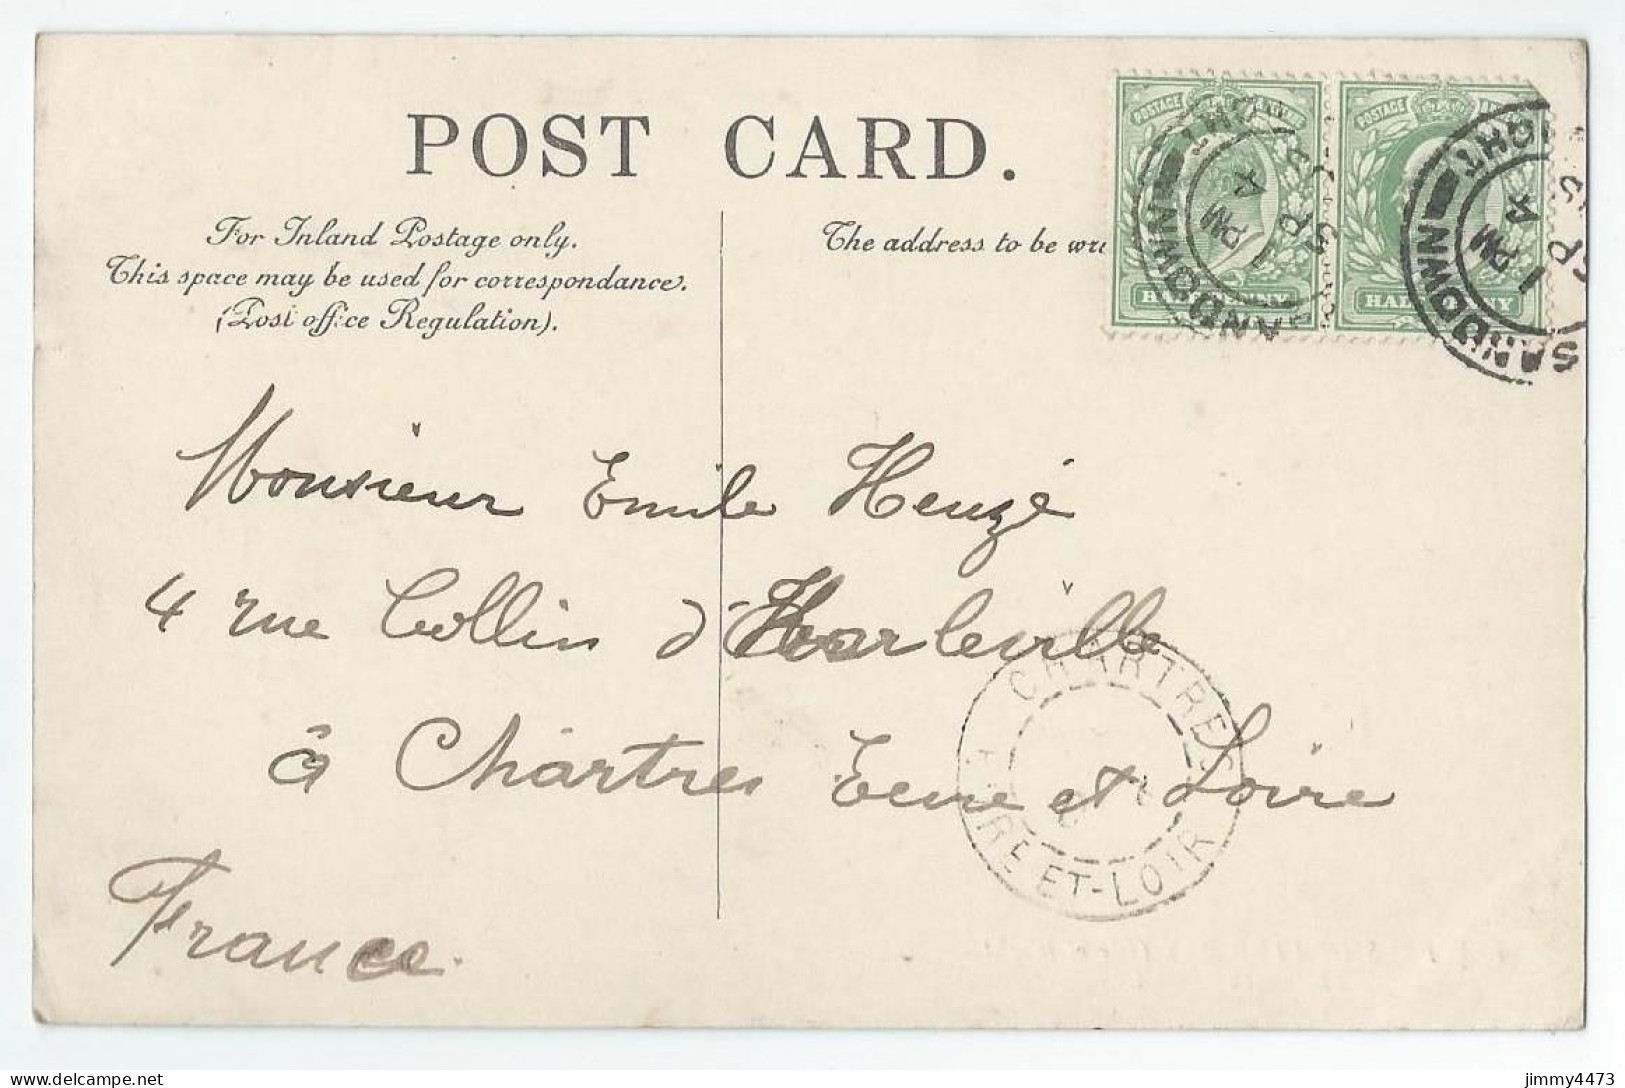 POST CARD.
For Inland Postage only.
This space may be used for correspondance.
(Post office Regulation).
The address to be wri
POSTAGE
HALFPENNY
POSTAGE
HALFPENNY
SANDOWN I OF WIGHT
1 PM
SP 4
SANDOWN
1 PM
SP 4
Monsieur Emile Heuzé
4 rue Collin d'Harleville
à Chartres Eure et Loire
France.
CHARTRES
EURE-ET-LOIR
jimmy4473
delcampe.net